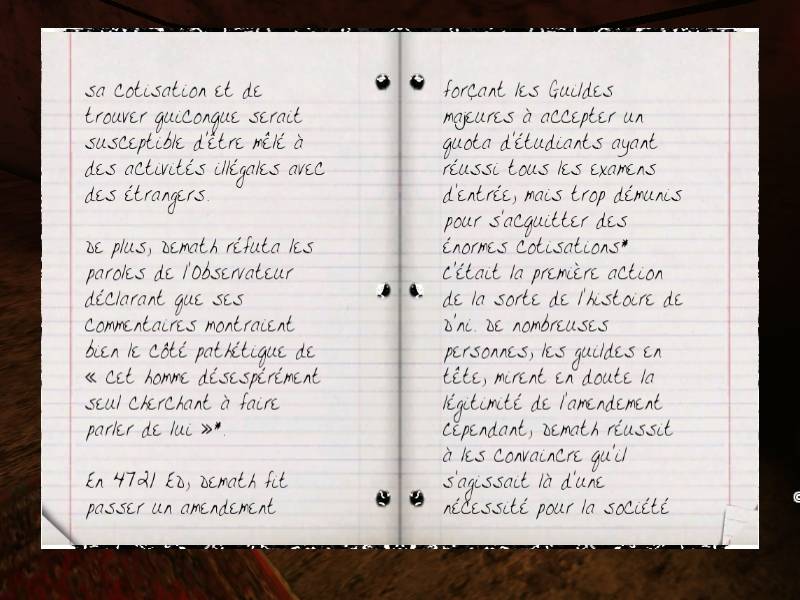 sa cotisation et de
trouver quiconque serait
susceptible d'être mêlé à
des activités illégales avec
des étrangers.
De plus, Demath réfuta les
paroles de l'Observateur
déclarant que ses
commentaires montraient
bien le côté pathétique de
« cet homme désespérément
seul cherchant à faire
parler de lui »*.
En 4721 ED, Demath fit
passer un amendement
forçant les Guildes
majeures à accepter un
quota d'étudiants ayant
réussi tous les examens
d'entrée, mais trop démunis
pour s'acquitter des
énormes cotisations*
C'était la première action
de la sorte de l'histoire de
D'ni. De nombreuses
personnes, les guildes en
tête, mirent en doute la
légitimité de l'amendement
Cependant, Demath réussit
à les convaincre qu'il
s'agissait là d'une
nécessité pour la société